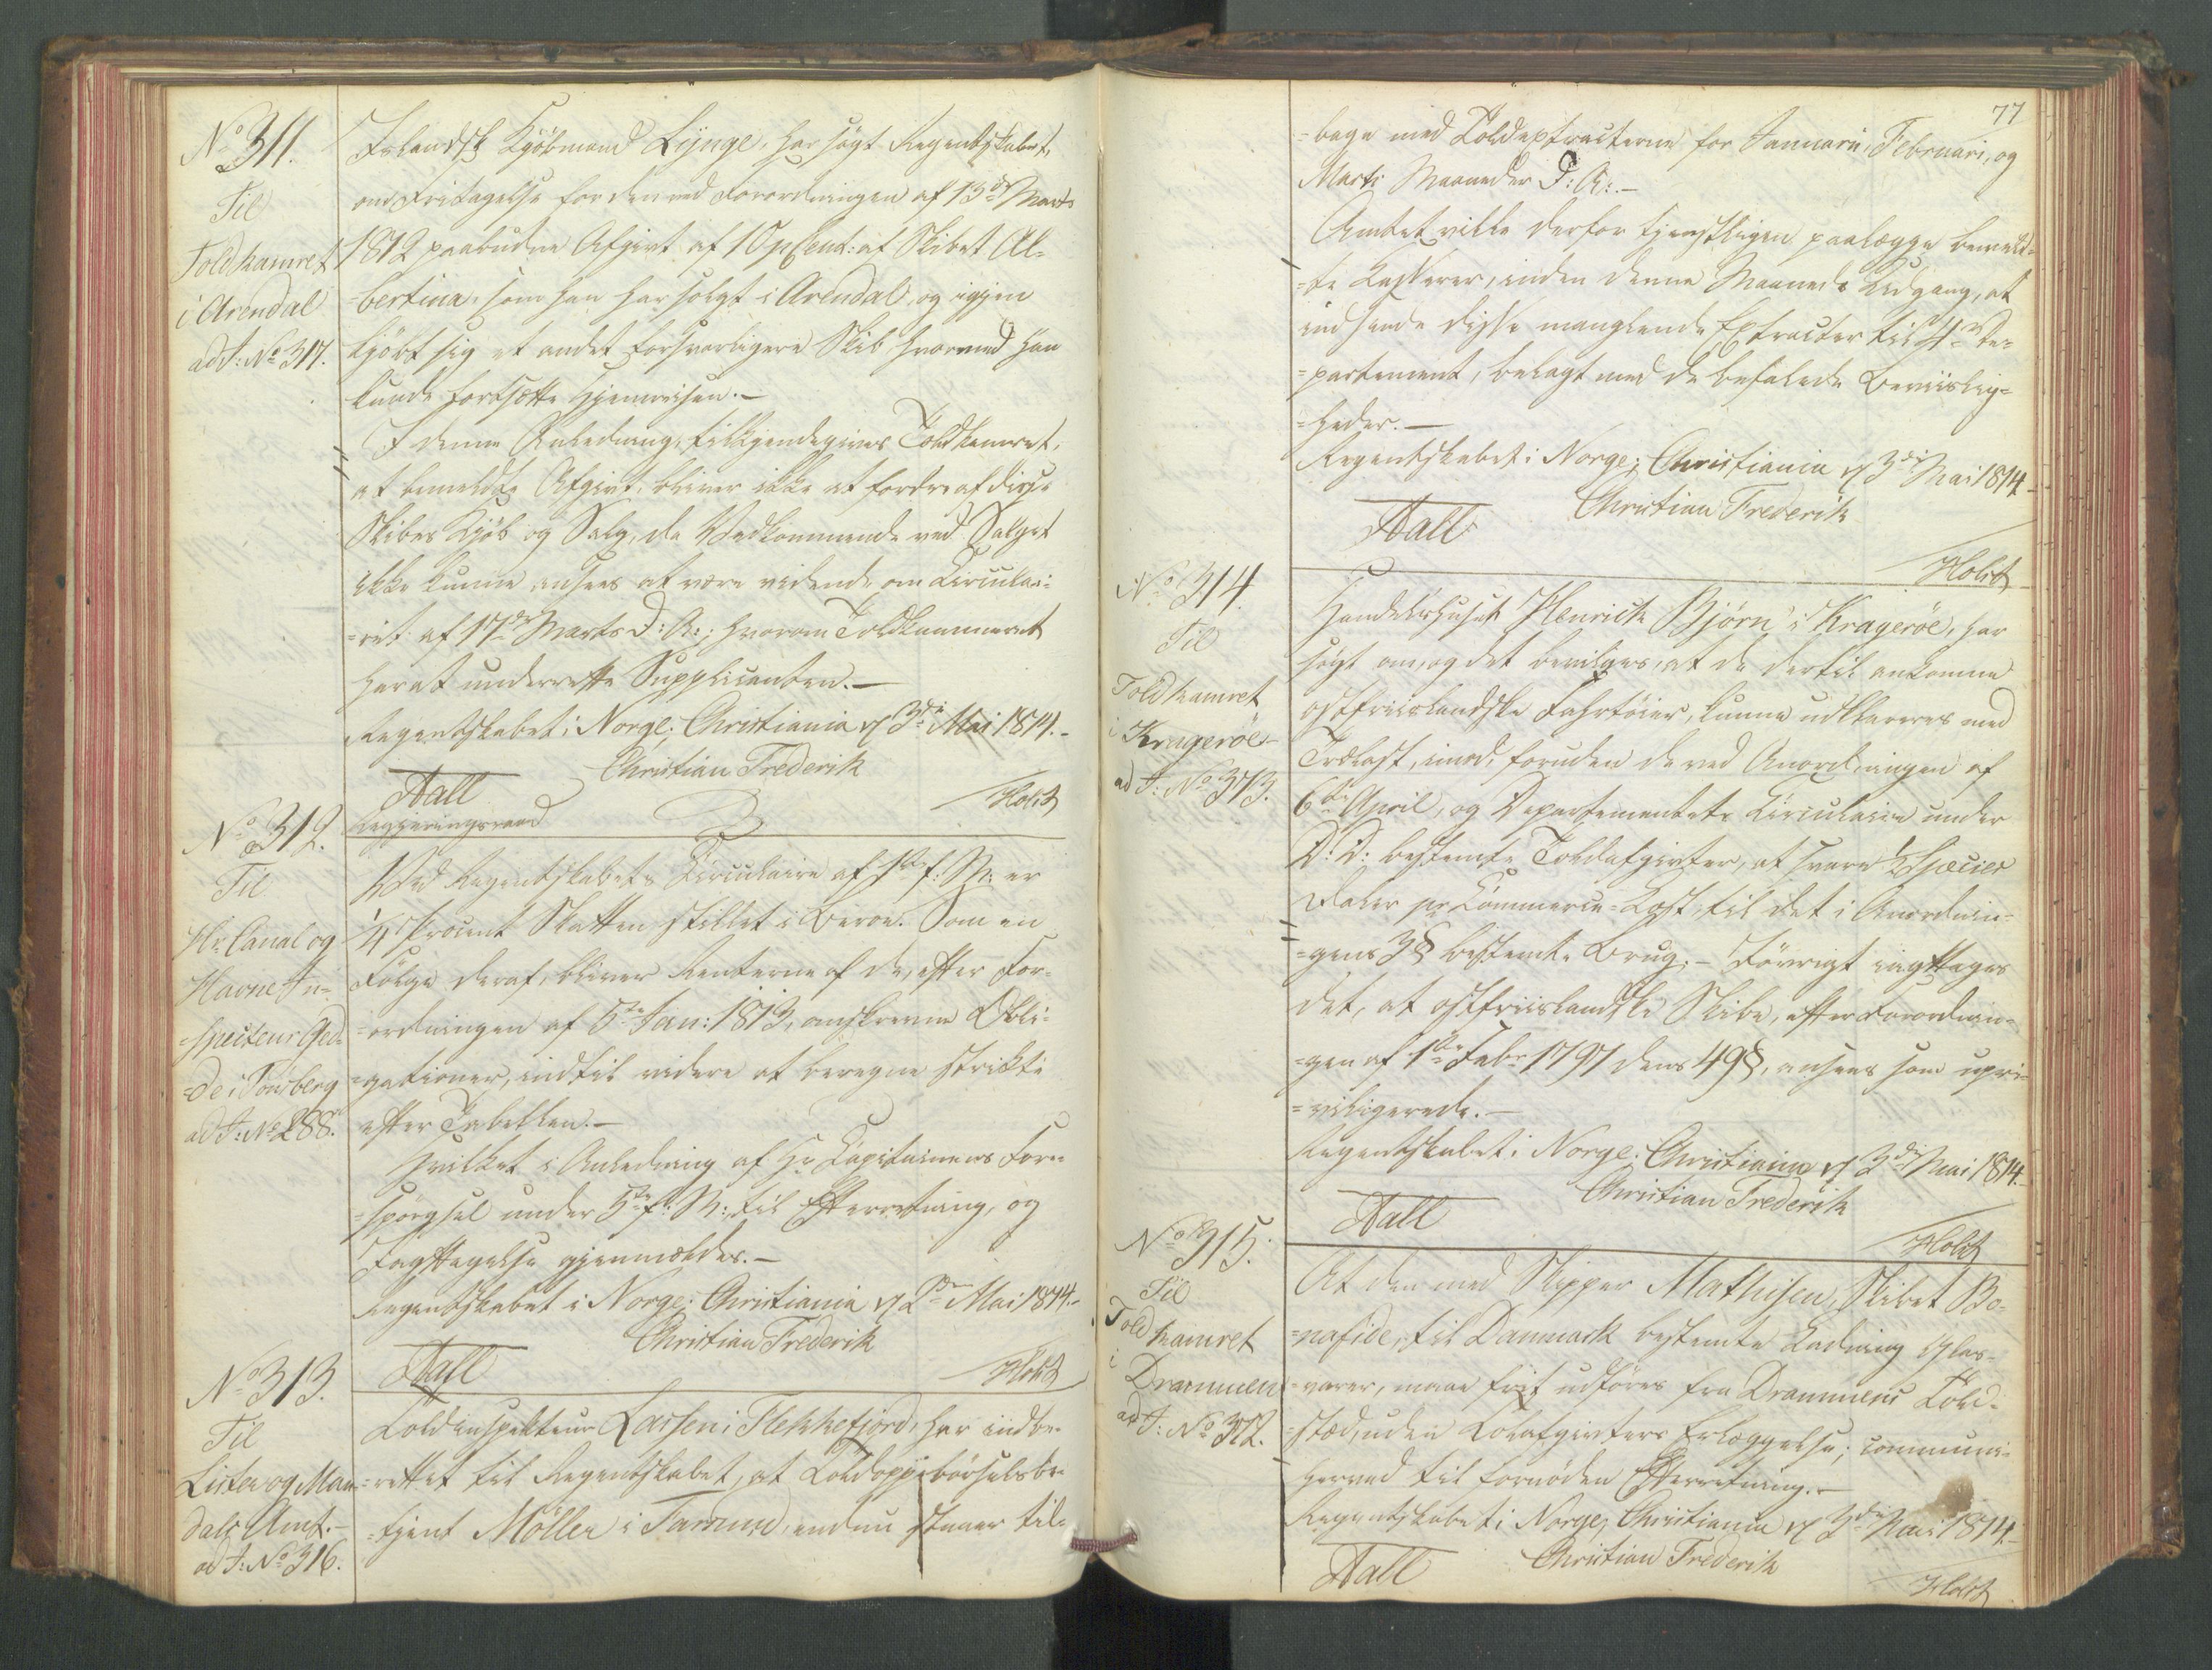 No 311.
Til
Toldkamret
i Arendal
ad J: No 317.
Islandsk Kjöbmand Lynge, har søgt Regentskabet,
om Fritagelse for den ved Forordningen af 13de Marts
1812 paabudne Afgivt af 10 pCent: af Skibet Al-
=bertina, som han har solgt i Arendal, og igjen
kjöbt sig et andet forsvarligere Skib hvormed han
kunde fortsætte Hjemreisen.-
I denne Anledning, tilkjendegives Toldkamret,
at bemeldte Afgivt, bliver ikke at fordre af disse
Skibes Kjöb og Salg, da Vedkommende ved Salget
ikke kunne ansees at være vidende om Circulai-
=ret af 17de Marts D: A:, hvorom Toldkammeret
har at underrette Supplicanten.-
Regentskabet i Norge; Christiania d 3die Mai 1814.-
Christian Frederik
Aall
Regjeringsraad
Holst
No 312.
Til
Hr. Canal og
Havne In-
=specteur Ged-
=de i Tönsberg
ad J: No 288.
Ved Regentskabets Circulaire af 1ste f: M: er
1/4 procent Skatten stillet i Beroe. Som en
Følge deraf, bliver Renterne af de, efter For-
=ordningen af 5te Jan: 1813, omskrevne Obli-
=gationer, indtil videre at beregne strikte
efter Tabellen.-
Hvilket i Anledning af Hr Capitainens Fore-
=spörgsel under 5te f: M:, til Efterretning, og
Iagttagelse gjenmeldes.-
Regentskabet i Norge; Christiania d 2den Mai 1814.-
Christian Frederik
Aall
Holst
No 313.
Til
Lister og Man-
dals Amt.-
ad J: No 316.
Toldinspekteur Larsen i Flekkefjord, har indbe-
=rettet til Regentskabet, at Toldoppebörselsbe-
=tjent Möller i Farsund, endnu staaer til-
77
=bage med Toldextracterne for Januarii, Februari, og
Marti Maaneder D: A:.-
Amtet ville derfor tjenstligen paalægge bemeld-
=te Kasserer, inden denne Maaneds Udgang, at
indsende disse manglende Extracter til 4de De-
=partement, belagt med de befalede Beviislig-
=heder.-
Regentskabet i Norge; Christiania d 3die Mai 1814.-
Christian Frederik
Aall
Holst
No 314.
Til
Toldkamret
i Kragerøe-
ad J: No 313.
Handelshuset Henrich Bjørn i Kragerøe, har
søgt om, og det bevilges, at de dertil ankomne
ostfriislandske Fahrtöier, kunne udklareres med
Trælast, imod, foruden de ved Anordningen af
6te April, og Departementets Circulaire under
D: D: bestemte Toldafgivter, at svare 1/2 Species
daler pr Commerce-Lest, til det i Anordnin-
=gens 3§ bestemte Brug.- Iövrigt iagttages
det, at ostfriislandske Skibe, efter Forordnin-
=gen af 1ste Febr 1797 dens 49§, ansees som upri-
=viligerede.-
Regentskabet i Norge; Christiania d 3die Mai 1814.-
Christian Frederik
Aall
Holst
No 315.
Til
Toldkamret
i
Drammen
ad J: No 312.
At den med Skipper Mathisen, Skibet Bo-
=nafide, til Danmark bestemte Ladning Glas-
=varer, maae frit udföres fra Drammens Told-
=sted, uden Toldafgivters Erlæggelse; communi-
herved til fornöden Efterretning.-
Regentskabet i Norge; Christiania d 3die Mai 1814.-
Christian Frederik
Aall
Holst